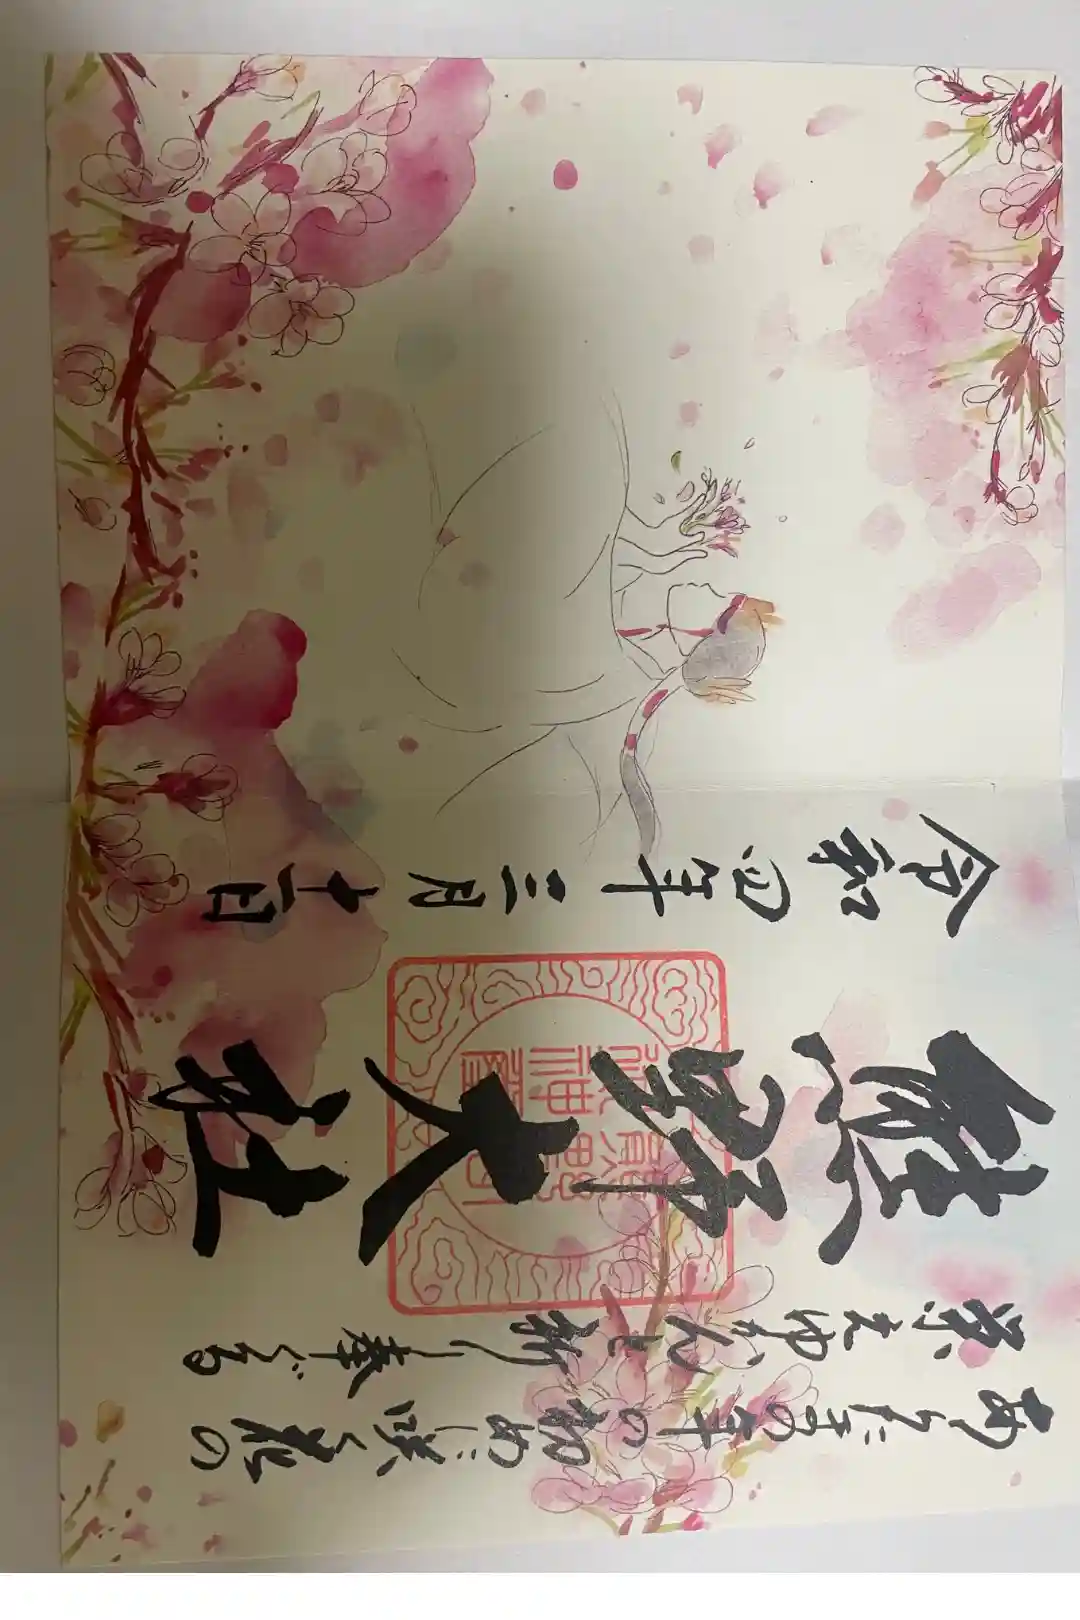 あらたまの年の初めに咲く花の
栄えゆかんと祈り奉ぐる
熊野大社
令和四年三月十一日